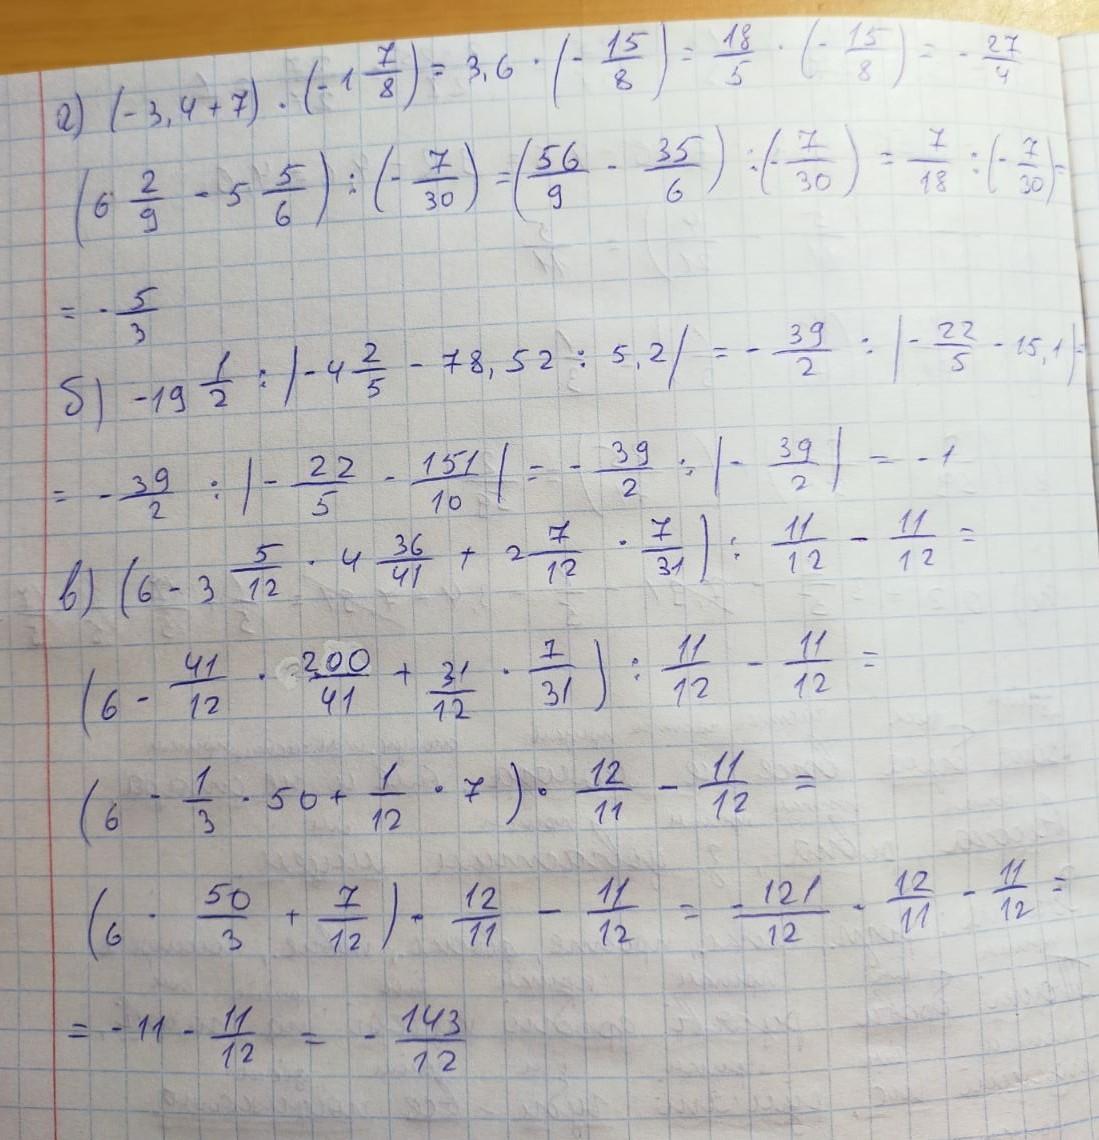 а) (-3,4+7) · (-1 7/8) = 3,6 · (- 15/8) = 18/5 · (- 15/8) = - 27/4
(6 2/9 - 5 5/6) : (- 7/30) = (56/9 - 35/6) : (- 7/30) = 7/18 : (- 7/30) =
= - 5/3
б) -19 1/2 : |-4 2/5 - 78,52 : 5,2| = - 39/2 : |- 22/5 - 15,1| =
= - 39/2 : |- 22/5 - 151/10| = - 39/2 : |- 39/2| = -1
в) (6 - 3 5/12 · 4 36/41 + 2 7/12 · 7/31) : 11/12 - 11/12 =
(6 - 41/12 · 200/41 + 31/12 · 7/31) : 11/12 - 11/12 =
(6 - 1/3 · 50 + 1/12 · 7) · 12/11 - 11/12 =
(6 - 50/3 + 7/12) · 12/11 - 11/12 = - 121/12 · 12/11 - 11/12 =
= -11 - 11/12 = - 143/12